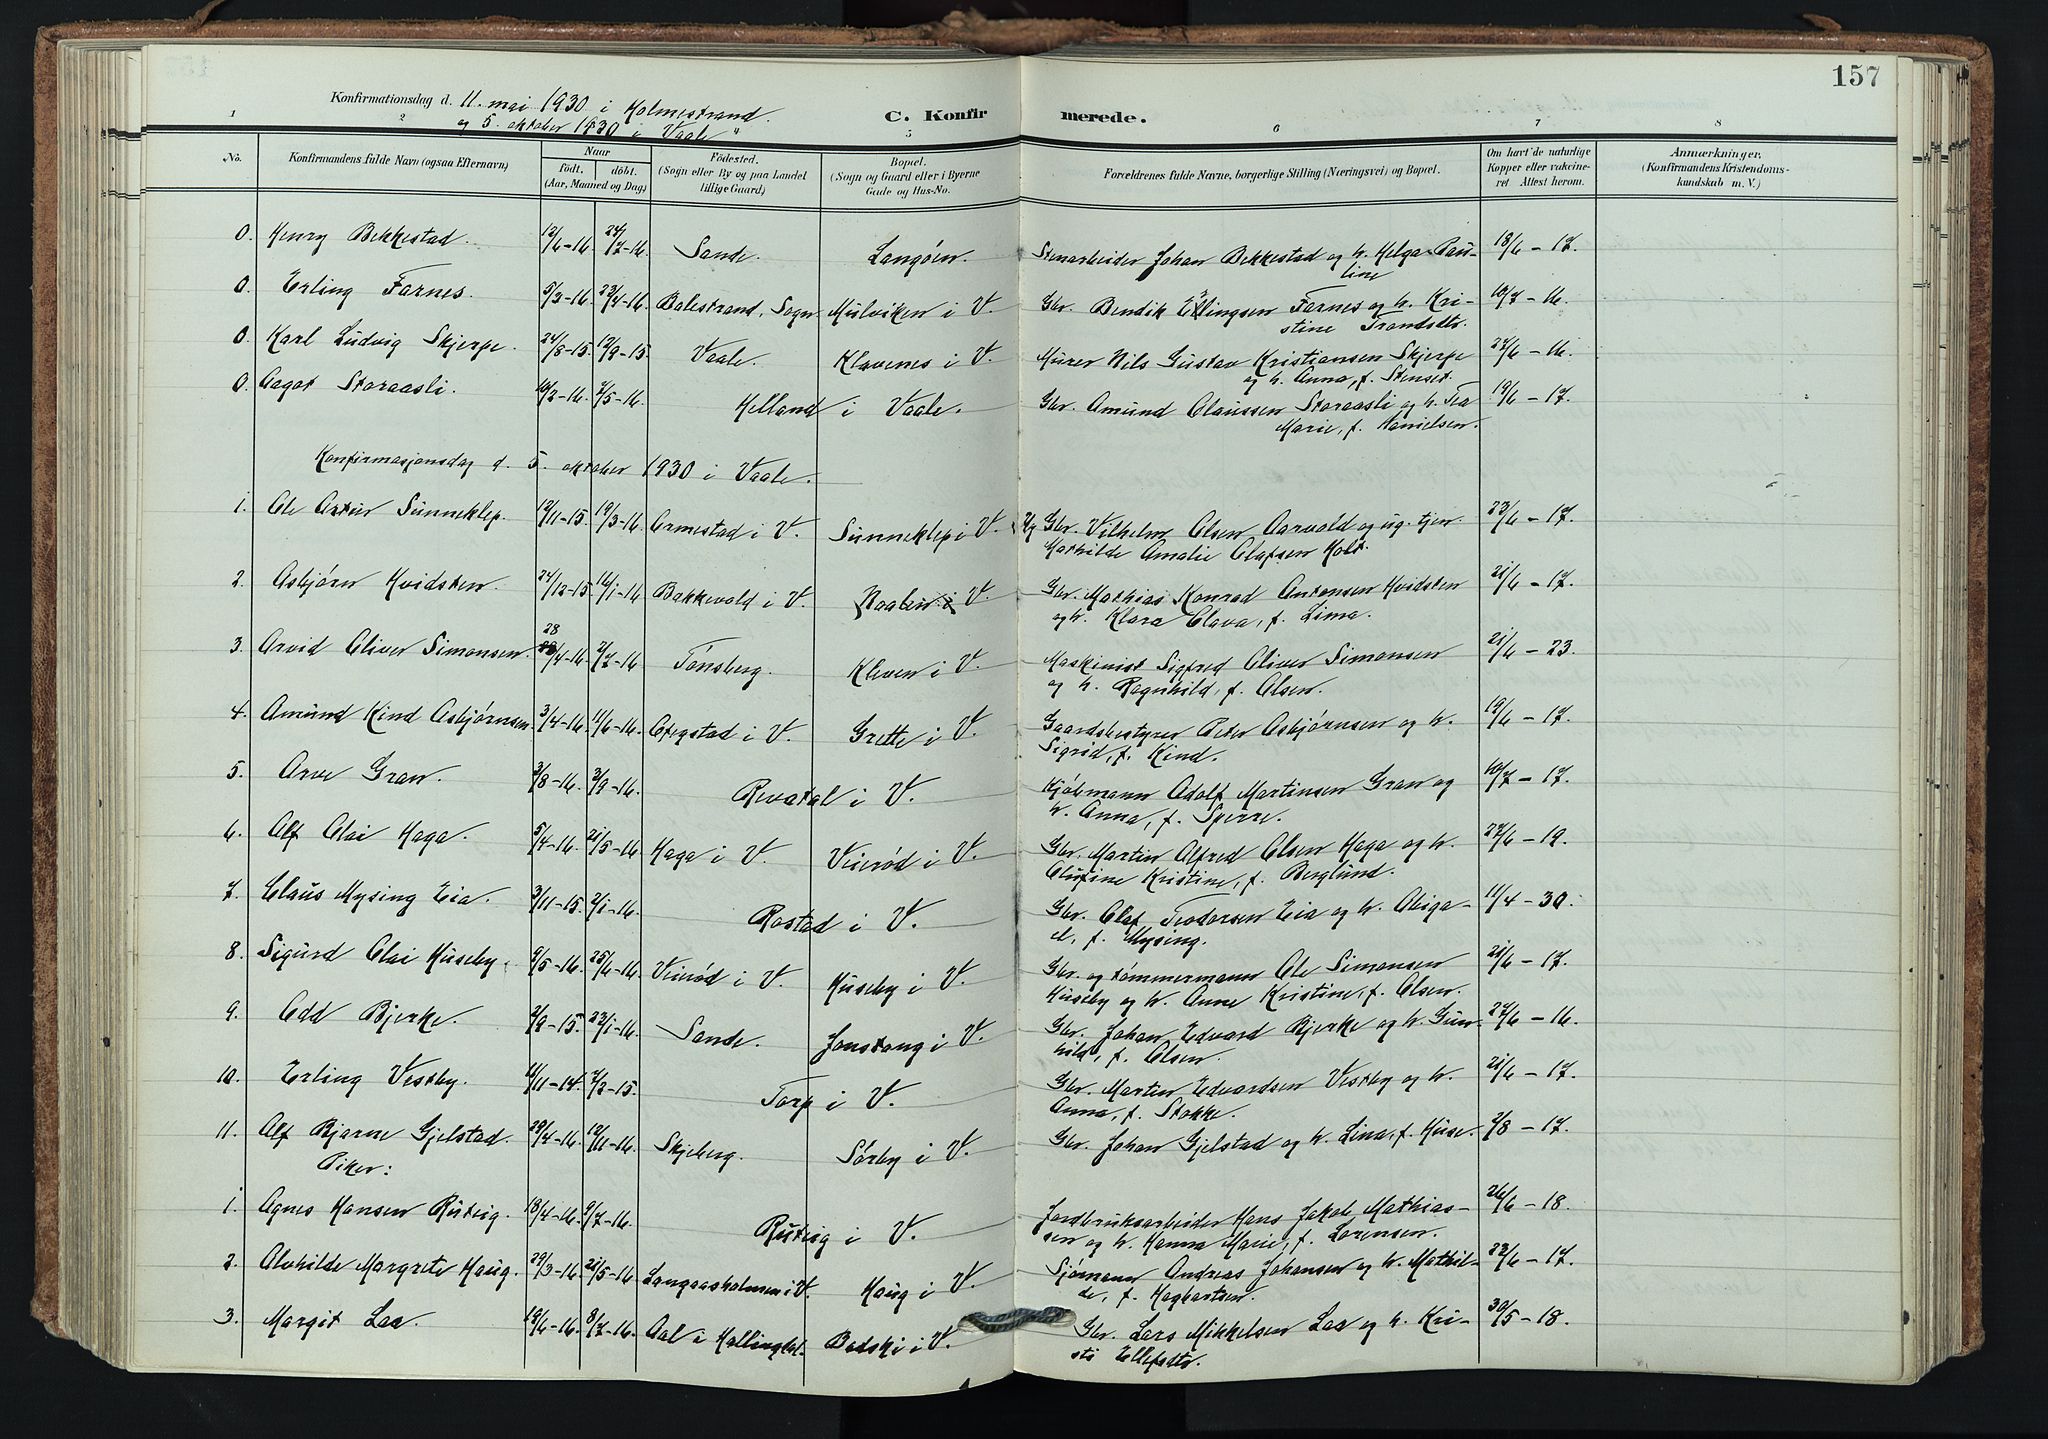 157
Konfirmationsdag d. 11. mai 1930 i Holmestrand.
og 5. oktober 1930 i Vaale "
C. Konfirmerede.
1 2 5 6 7 8
No. Konfirmandens fulde Navn (ogsaa Efternavn) Naar født. døbt. (Aar, Maaned og Dag) Fødested. (Sogn eller By og paa Landet tillige Gaard) Bopæl. (Sogn og Gaard eller i Byerne Gade og Hus-No. Forældrenes fulde Navne, borgerlige Stilling (Næringsvei) og Bopæl. Om havt de naturlige Kopper eller vakcineret Attest herom. Anmærkninger, (Konfirmandens Kristendomskundskab m. V.)
0. Henry Bekkestad. 12/6-16. 24/7-16. Sande. Langöen. Stenarbeider Johan Bekkestad og h. Helga Pau- 18/6 - 17.
line
0. Erling Farnes. 5/3-16. 23/4-16. Balestrand, Sogn Mulviken i V. Gbr. Bendik Ellingsen Farnes og h. Kri- 10/7 - 16.
stine Trondsdtr.
0. Karl Ludvig Skjerpe. 24/8-15. 12/9-15. Vaale. Klavenes i V. Murer Nils Gustav Kristiansen Skjerpe 27/6 - 16.
og h. Anna, f. Stenset.
0. Aagot Storaasli. 10/2-16. 7/5-16. Helland i Vaale. Gbr. Amund Olaussen Storaasli og h. Tea 19/6 - 17.
Marie, f. Danielsen.
Konfirmasjonsdag d. 5. oktober 1930 i Vaale.
1. Ole Artur Sunneklep. 12/11-15. 19/3-16. Ormestad i V. Sunneklep i V. Gbr. Vilhelm Olsen Aarvold og ug. tjen. 23/6 - 17.
Mathilde Amalie Olafsen Holt.
2. Asbjørn Hvidsten. 24/12-15. 16/1-16 Bakkevold i V. i V. Gbr. Mathias Konrad Antonsen Hvidsten 21/6 - 17.
og h. Klara Olava, f. Lima.
3. Arvid Oliver Simonsen. 28/4-16. 2/7-16 Tønsberg. Kleven i V. Maskinist Sigfred Oliver Simonsen 21/6 - 23.
og h. Ragnhild, f. Olsen.
4. Amund Kind Asbjørnsen. 3/4-16. 11/6-16 i V. Grette i V. Gaardsbestyrer Peter Asbjørnsen og h. 19/6 - 17.
Sigrid, f. Kind.
5. Arve Gran. 3/8-16. 3/9-16. Revetal i V. Kjøbmann Adolf Martinsen Gran og 10/7 - 17.
h. Anna, f. Sperre.
6. Alf Olai Haga. 5/4-16. 21/5-16 Haga i V. Vierød i V. Gbr. Martin Alfred Olsen Haga og h. 27/6 - 19.
Olufine Kristine, f. Berglund.
7. Claus Mysing Eia. 3/11-15. 2/1-16. Rostad i V. Gbr. Olaf Teodorsen Eia og h. Abiga- 11/4 - 30.
el, f. Mysing.
8. Sigurd Olai Huseby. 9/5-16. 25/6-16. Vierød i V. Huseby i V. Gbr. og tømmermann Ole Simonsen 21/6 - 17.
Huseby og h. Anne Kristine, f. Olsen.
9. Odd Bjerke. 2/9-15. 23/1-16. Sande. Jonstang i V. Gbr. Johan Edvard Bjerke og h. Gun- 27/6 - 16.
hild, f. Olsen.
10. Erling Vestby. 11-14. 7/2-15. Torp i V. Gbr. Martin Edvardsen Vestby og h. 21/6 - 17.
Anna, f. Stokke.
11. Alf Bjarne Gjelstad. 29/4-16. 12/11-16. Skjeberg. Sørby i V. Gbr. Johan Gjelstad og h. Lina, f. Huse. 2/8 - 17.
Piker:
1. Agnes Hansen Rutvig. 18/4-16. 9/7-16. Rutvig i V. Jordbruksarbeider Hans Jakob Mathias- 26/6 - 18.
sen og h. Hanna Marie, f. Lorensen.
2. Alvhilde Margrete Haug. 29/3-16. 21/5-16 Langaasholmen i V. Haug i V. Sjømann Andreas Johansen og h. Mathil- 22/6 - 17.
de, f. Hagbartsen.
3. Margit Laa. 19/6-16. 8/7-16. Aal i Hallingdal. Bodski i V. Gbr. Lars Mikkelsen Laa og h. Kri- 30/5 - 18.
sti Ellefsdtr.